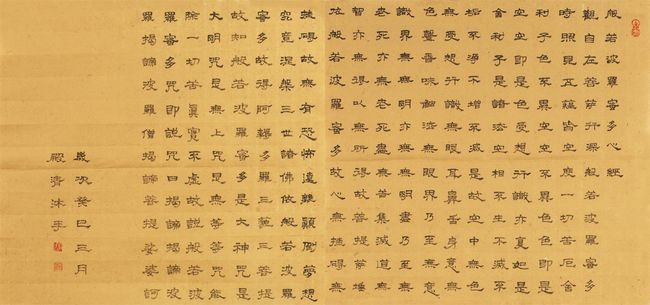 般若波羅蜜多心經
觀自在菩薩行深般若波羅蜜多
時照見五蘊皆空度一切苦厄舍
利子色不異空空不異色色即是
空空即是色受想行識亦復如是
舍利子是諸法空相不生不滅不
垢不淨不增不減是故空中無色
無受想行識無眼耳鼻舌身意無
色聲香味觸法無眼界乃至無意
識界無無明亦無無明盡乃至無
老死亦無老死盡無苦集滅道無
智亦無得以無所得故菩提薩埵
依般若波羅蜜多故心無挂礙無
挂礙故無有恐怖遠離顛倒夢想
究竟涅槃三世諸佛依般若波羅
蜜多故得阿耨多羅三藐三菩提
故知般若波羅蜜多是大神咒是
大明咒是無上咒是無等等咒能
除一切苦真實不虛故說般若波
羅蜜多咒即說咒曰揭諦揭諦波
羅揭諦波羅僧揭諦菩提娑婆訶
歲次癸巳三月
清沐手